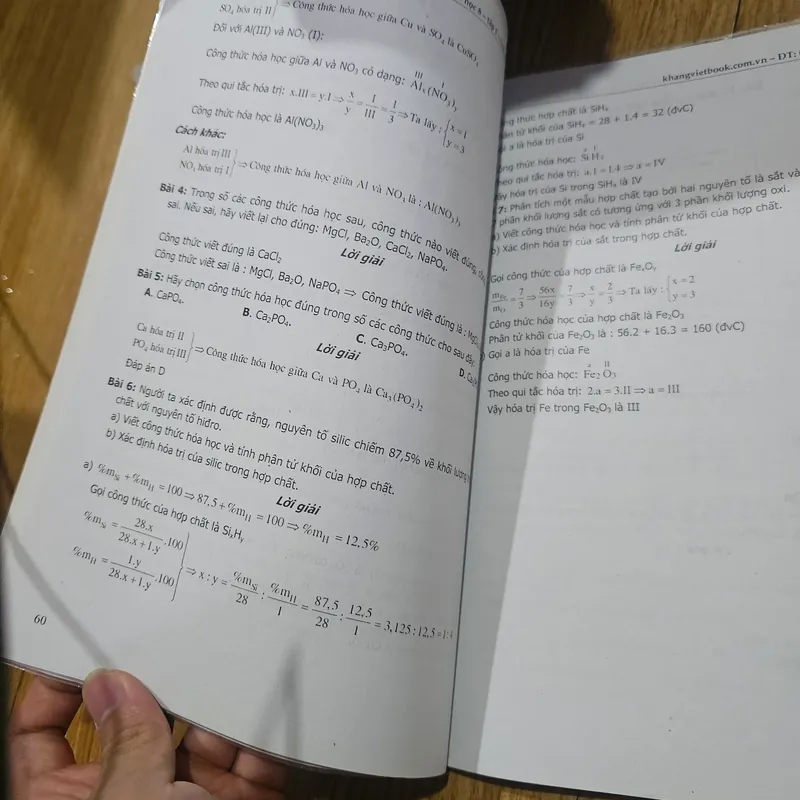 học 8 –
SO₄ hóa trị II } ⇒ Công thức hóa học giữa Cu và SO₄ là CuSO₄
Đối với Al(III) và NO₃ (I):
Công thức hóa học giữa Al và NO₃ có dạng: Alₓ(NO₃)ᵧ
III I
Theo qui tắc hóa trị: x.III = y.I ⇒ x/y = I/III = 1/3 ⇒ Ta lấy : { x = 1 y = 3
Công thức hóa học là Al(NO₃)₃
Cách khác:
Al hóa trị III
NO₃ hóa trị I } ⇒ Công thức hóa học giữa Al và NO₃ là : Al(NO₃)₃
Bài 4: Trong số các công thức hóa học sau, công thức nào viết đúng,
sai. Nếu sai, hãy viết lại cho đúng: MgCl, Ba₂O, CaCl₂, NaPO₄.
Lời giải
Công thức viết đúng là CaCl₂
Công thức viết sai là : MgCl, Ba₂O, NaPO₄ ⇒ Công thức viết đúng là :
Bài 5: Hãy chọn công thức hóa học đúng trong số các công thức cho sau đây:
A. CaPO₄. B. Ca₂PO₄. C. Ca₃PO₄. D.
Lời giải
Ca hóa trị II
PO₄ hóa trị III } ⇒ Công thức hóa học giữa Ca và PO₄ là Ca₃(PO₄)₂
Đáp án D
Bài 6: Người ta xác định được rằng, nguyên tố silic chiếm 87,5% về khối lượng
chất với nguyên tố hiđro.
a) Viết công thức hóa học và tính phân tử khối của hợp chất.
b) Xác định hóa trị của silic trong hợp chất.
Lời giải
a) %m_Si + %m_H = 100 ⇒ 87,5 + %m_H = 100 ⇒ %m_H = 12,5%
Gọi công thức của hợp chất là SiₓHᵧ
%m_Si = 28.x/(28.x + 1.y) .100
%m_H = 1.y/(28.x + 1.y) .100 } ⇒ x : y = %m_Si/28 : %m_H/1 = 87,5/28 : 12,5/1 = 3,125 : 12,5 = 1 : 4
60
khangvietbook.com.vn – ĐT:
thức hợp chất là SiH₄
tử khối của SiH₄ = 28 + 1.4 = 32 (đvC)
a là hóa trị của Si
thức hóa học: SiH₄
a I
qui tắc hóa trị: a.1 = 1.4 ⇒ a = IV
hóa trị của Si trong SiH₄ là IV
7: Phân tích một mẫu hợp chất tạo bởi hai nguyên tố là sắt và
phần khối lượng sắt có tương ứng với 3 phần khối lượng oxi.
a) Viết công thức hóa học và tính phân tử khối của hợp chất.
b) Xác định hóa trị của sắt trong hợp chất.
Lời giải
Gọi công thức của hợp chất là FeₓOᵧ
m_Fe/m_O = 7/3 ⇒ 56x/16y = 7/3 ⇒ x/y = 2/3 ⇒ Ta lấy : { x = 2 y = 3
Công thức hóa học của hợp chất là Fe₂O₃
Phân tử khối của Fe₂O₃ là : 56.2 + 16.3 = 160 (đvC)
Gọi a là hóa trị của Fe
a II
Công thức hóa học: Fe₂O₃
Theo qui tắc hóa trị: 2.a = 3.II ⇒ a = III
Vậy hóa trị Fe trong Fe₂O₃ là III